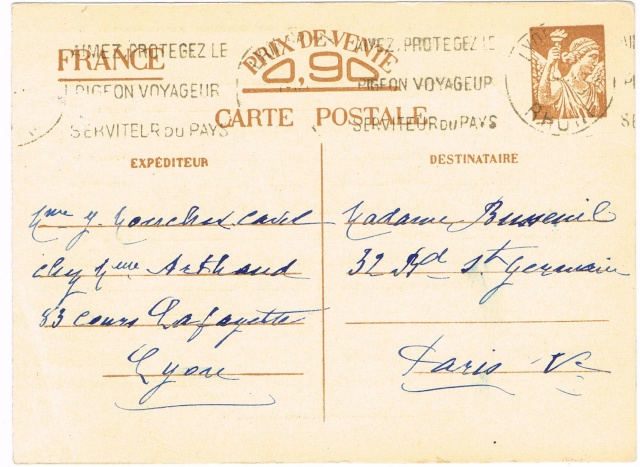 FRANCE
PRIX DE VENTE
0,90
CARTE POSTALE
AIMEZ, PROTEGEZ LE
PIGEON VOYAGEUR
SERVITEUR DU PAYS
AIMEZ, PROTEGEZ LE
PIGEON VOYAGEUR
SERVITEUR DU PAYS
LYON
RHONE
EXPÉDITEUR
Mme Y.
chez Mme Arthaud
83 cours Lafayette
Lyon
DESTINATAIRE
Madame
32 Bd St Germain
Paris Ve